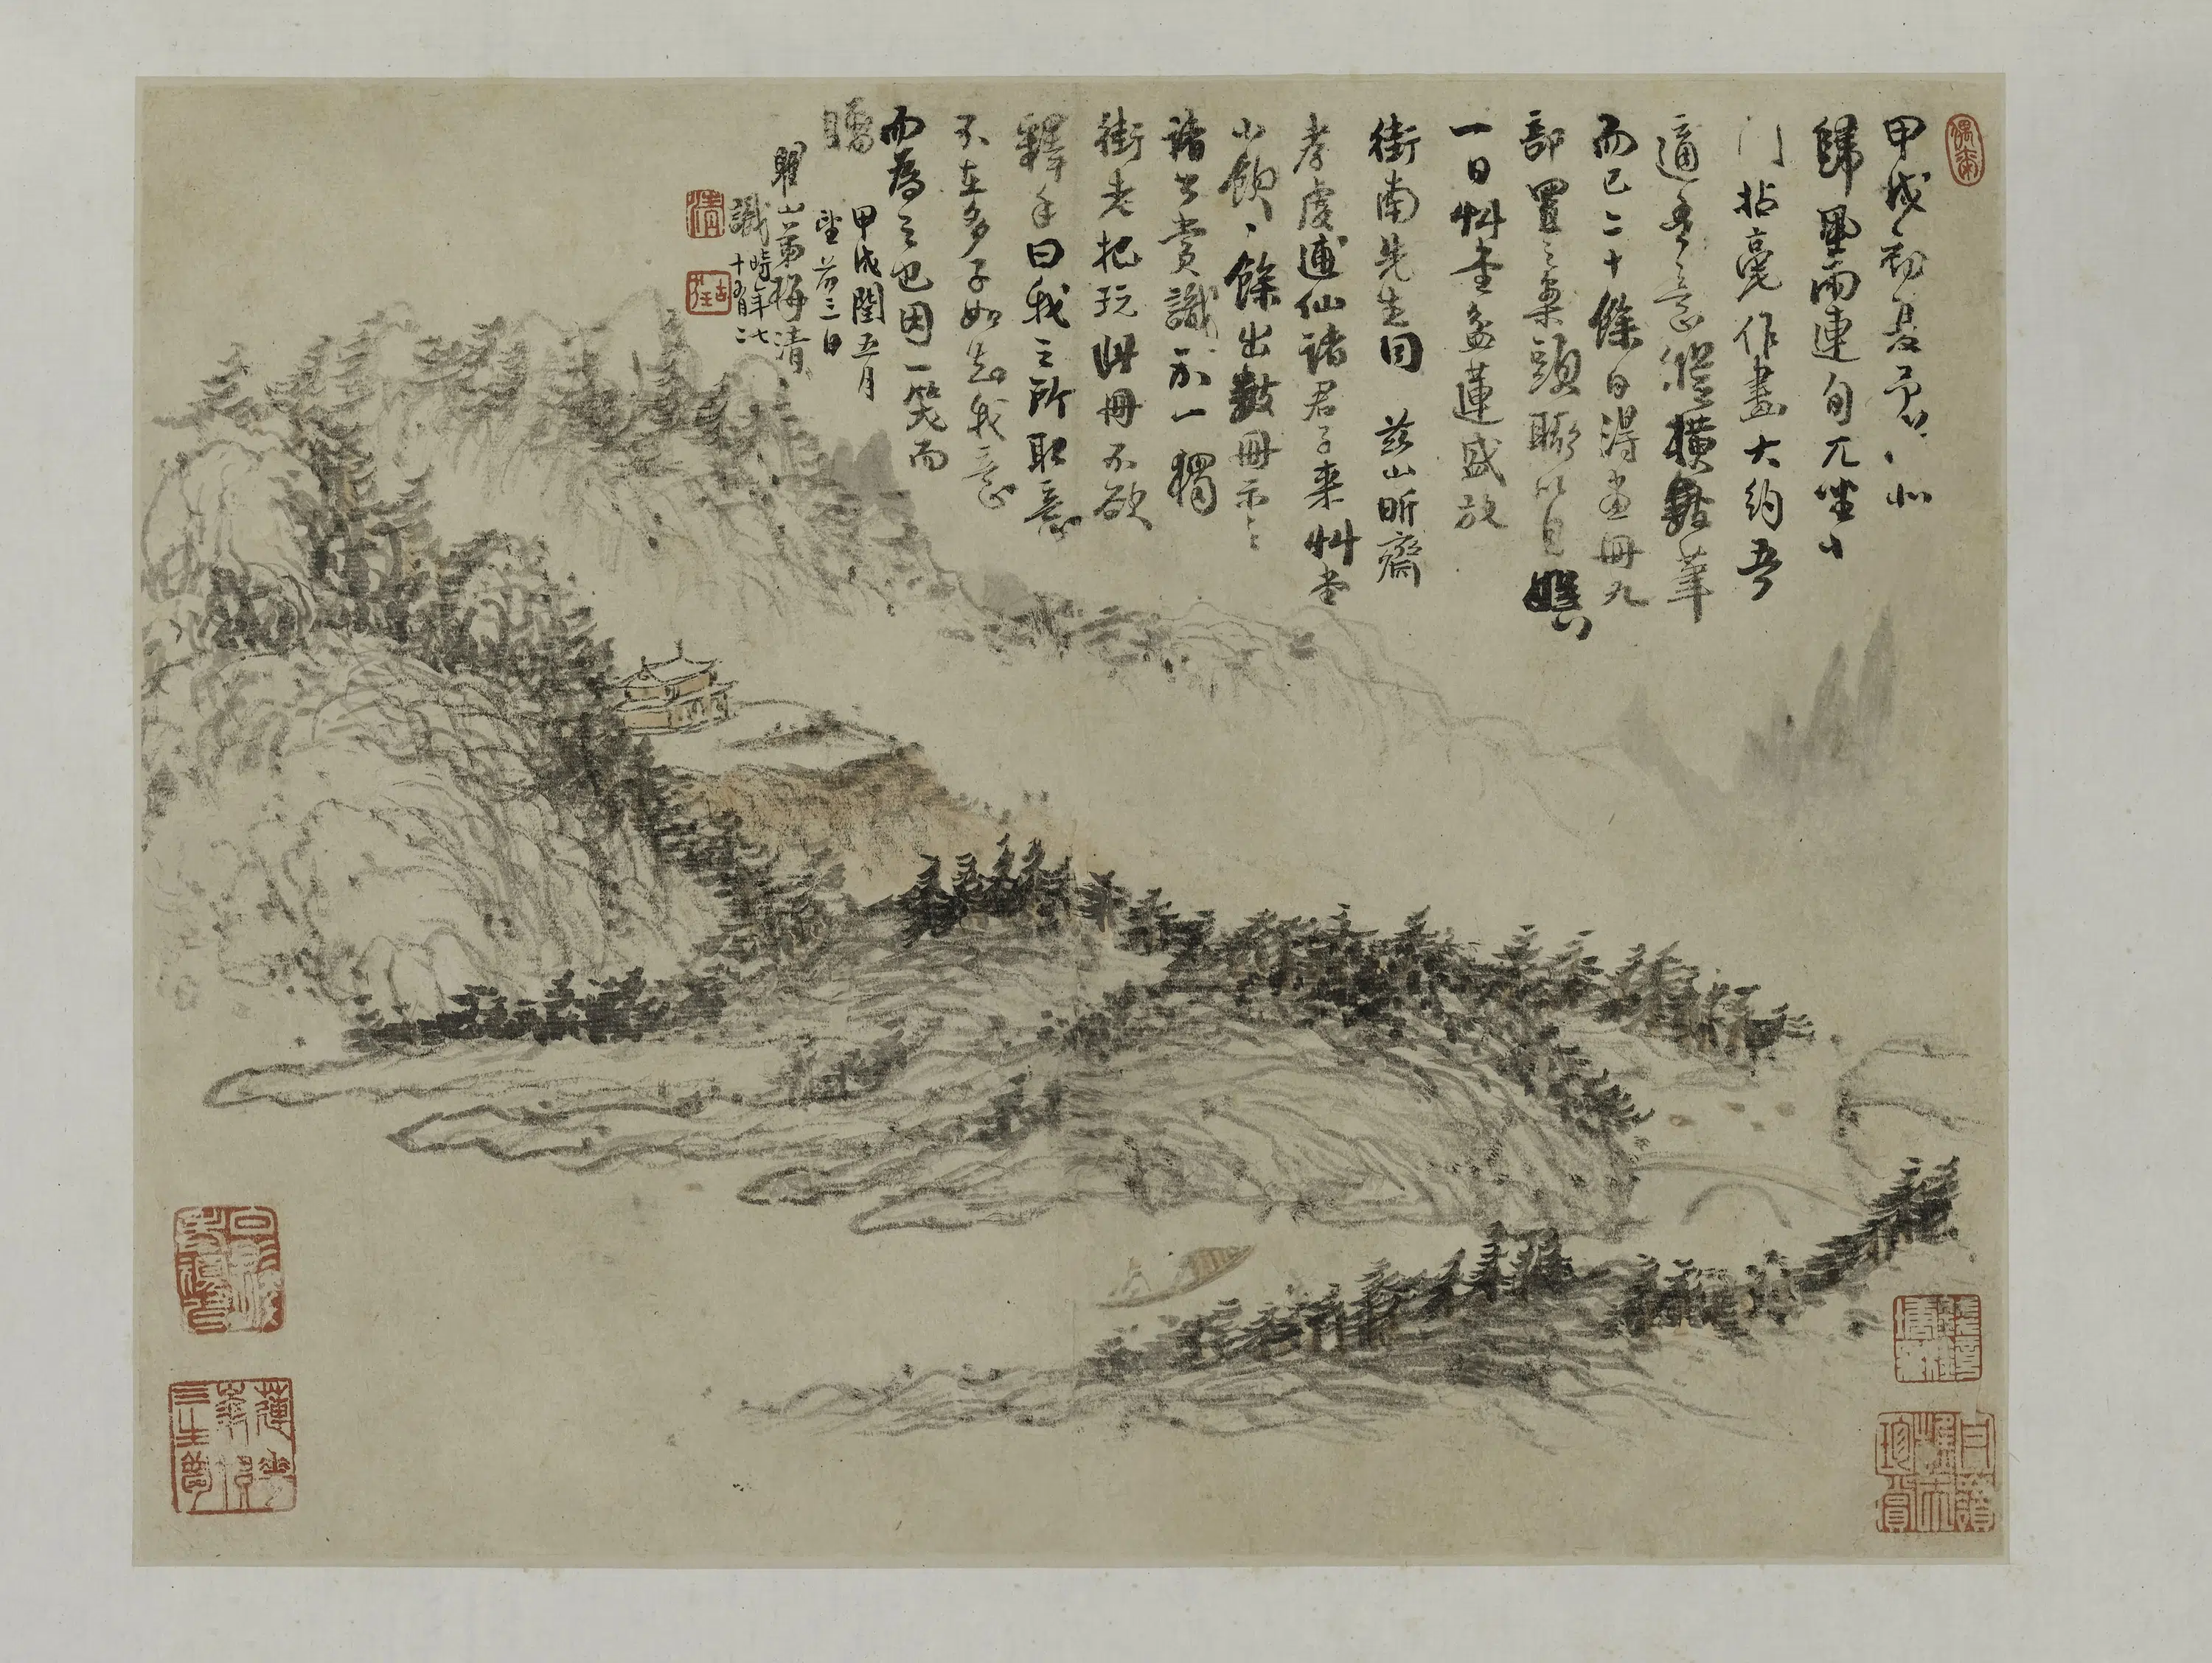 甲戌初夏予以北
歸風雨連旬兀坐小
门拈毫作畫大約吾
適吾意縱橫塗筆
而已二十餘日得畫冊九
部置之案頭聊以自娛
一日艸堂盆蓮盛放
街南先生同 茲山昕齋
孝虔逋仙諸君子来艸堂
小飲飲餘出數冊示之
諸公賞識不一獨
街老把玩此冊不欲
釋手曰我之所取意
不在多子如知我意
而為之也因一笑而
贈
甲戌閏五月
望前三日
瞿山弟梅清
識時年七
十有二